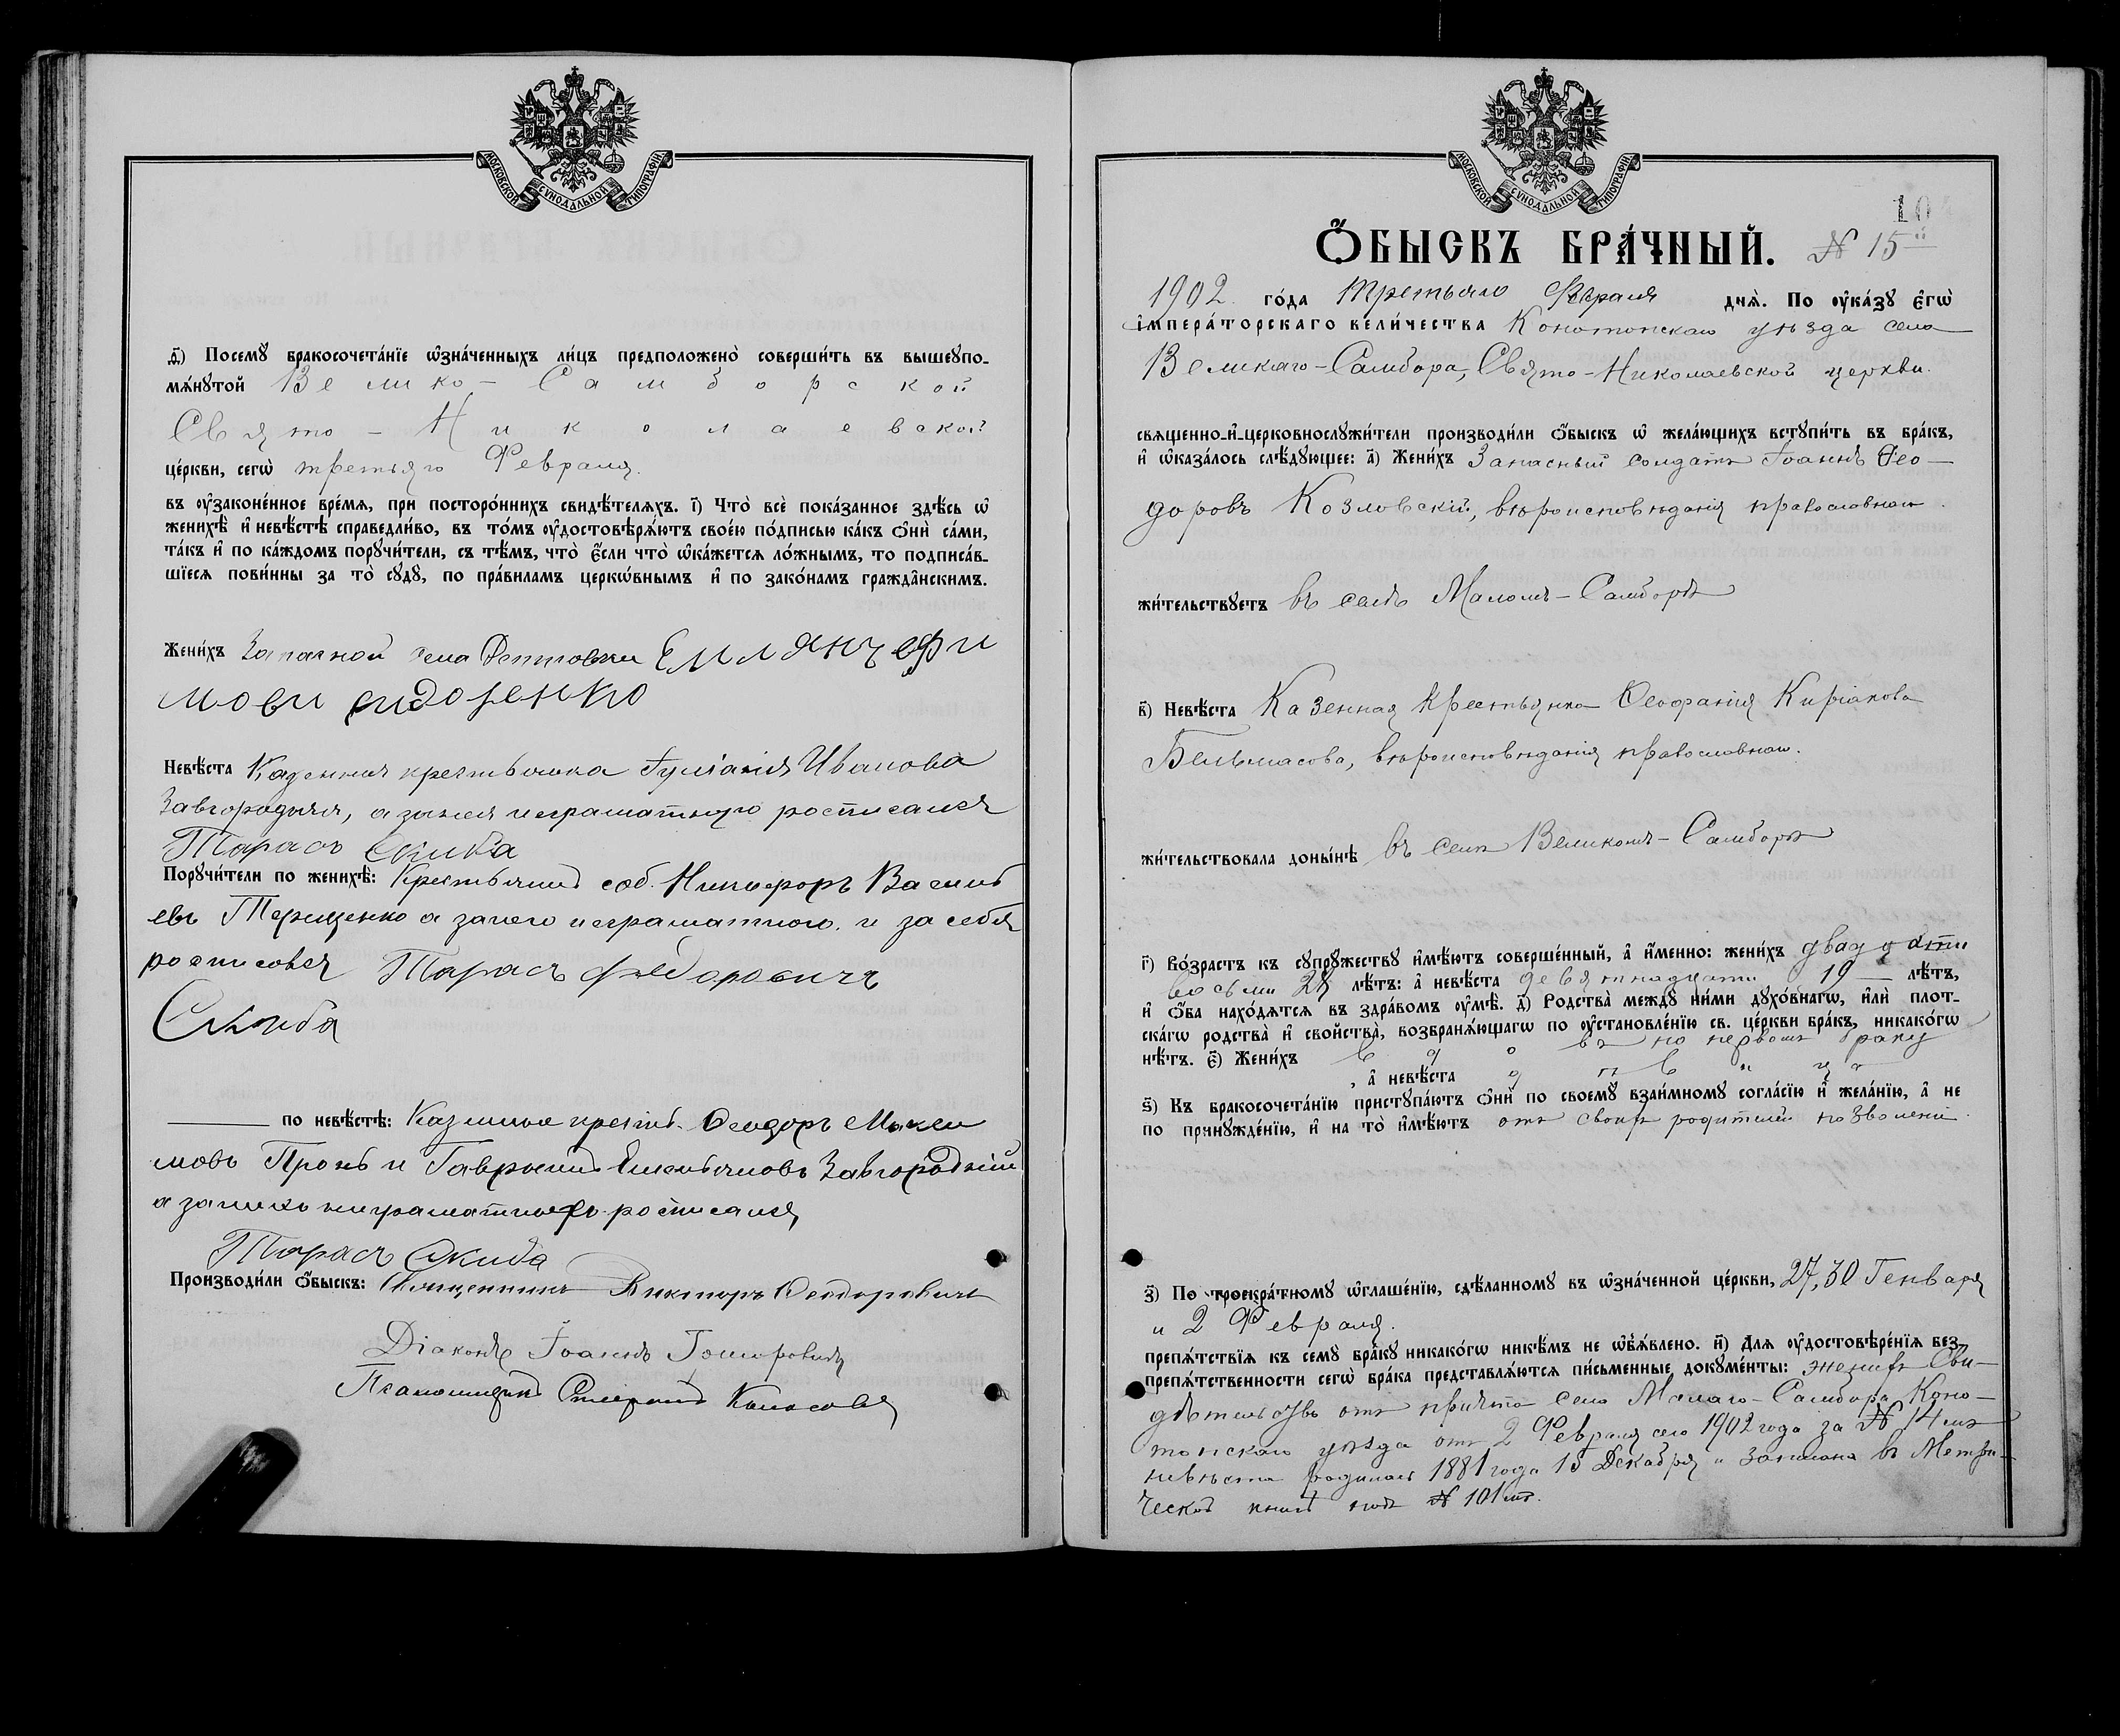 МОСКОВСКОЙ СУНОДАЛЬНОЙ ТИПОГРАФІИ
д҃) Посемꙋ бракосочета́нїе ѡ҆зна́ченныхъ ли́цъ предположено̀ соверши́ть въ вышеупо-
мѧ́нꙋтой Велико-Самборской
Свято-Николаевской
це́ркви, сегѡ̀ третьяго Февраля.
въ ѹ҆законе́нное вре́мѧ, при посторо́ннихъ свидѣ́телѧхъ. і҃) Что̀ всѐ пока́занное здѣ́сь ѡ҆
женихѣ̀ и҆ невѣ́стѣ справедли́во, въ то́мъ ѹ҆достовѣрѧ́ютъ свое́ю по́дписью ка́къ ѻ҆нѝ са́ми,
та́къ и҆ по ка́ждомъ порꙋчи́тели, съ тѣ́мъ, что̀ є҆́сли что̀ ѡ҆ка́жетсѧ ло́жнымъ, то подписа́в-
шїесѧ пови́нны за то̀ сꙋдꙋ̀, по пра́виламъ церко́внымъ и҆ по зако́намъ гражда́нскимъ.
Жени́хъ Запасной села Дептовки Емлянъ ефи
мови сидоренко
Невѣ́ста Казенная крестьянка Іуліанія Иванова
Завгородняя, а занея неграматную росписался
Тарасъ Скиба
Порꙋчи́тели по женихѣ̀: Крестьянинъ соб. Никифоръ Василь
евъ Терещенко а занего неграматного. и за себя
росписовся Тарасъ Федоровичъ
Скиба
по невѣ́стѣ: Казенные крестья. Ѳеодоръ Макси
мовъ Пронь и Гавриилъ Емельяновъ Завгородній
а занихъ неграматныхъ росписался
Тарасъ Скиба
Производи́ли ѻ҆́быскъ: Священникъ Викторъ Ѳеодоровичъ
Діаконъ Іоаннъ
Псаломщикъ
МОСКОВСКОЙ СУНОДАЛЬНОЙ ТИПОГРАФІИ
10
Ѻ҆́БЫСКЪ БРА́ЧНЫЙ. № 15й
1902 го́да третьяго Февраля днѧ̀. По ѹ҆ка́зꙋ є҆гѡ̀
і҆мпера́торскаго вели́чества Конотопскаго уѣзда села
Великаго-Самбора, Свято-Николаевской церкви.
свѧщенно-и҆-церковнослꙋжи́тели производи́ли ѻ҆́быскъ ѡ҆ жела́ющихъ встꙋпи́ть въ бра́къ,
и҆ ѡ҆каза́лось слѣ́дꙋющее: а҃) Жени́хъ Запасный солдатъ Іоаннъ Ѳео-
доровъ Козловскій, вѣроисповѣданія православнаго.
жи́тельствꙋетъ въ селѣ Маломъ-Самборѣ
в҃) Невѣ́ста Казенная крестьянка Ѳеофанія Киріакова
Бельмасова, вѣроисповѣданія православнаго.
жи́тельствовала донынѣ̀ въ селѣ Великомъ-Самборѣ
г҃) Во́зрастъ къ сꙋпрꙋ́жествꙋ и҆мѣ́ютъ соверше́нный, а҆ и҆́менно: жени́хъ двадцати
восьми 28 лѣ́тъ: а҆ невѣ́ста девятнадцати 19 — лѣ́тъ,
и҆ ѻ҆́ба нахо́дѧтсѧ въ здра́вомъ ѹ҆мѣ̀. д҃) Родства̀ междꙋ̀ ни́ми дꙋхо́внагѡ, и҆лѝ плот-
ска́гѡ родства̀ и҆ свойства̀, возбранѧ́ющагѡ по ѹ҆становле́нїю св. це́ркви бра́къ, никако́гѡ
нѣ́тъ. є҃) Жени́хъ вдовъ по первомъ браку
, а҆ невѣ́ста дѣвица
ѕ҃) Къ бракосочета́нїю пристꙋпа́ютъ ѻ҆нѝ по своемꙋ̀ взаи́мномꙋ согла́сїю и҆ жела́нїю, а҆ не
по принꙋжде́нїю, и҆ на то̀ и҆мѣ́ютъ отъ своихъ родителей позволеніе.
з҃) По троекра́тномꙋ ѡ҆глаше́нїю, сдѣ́ланномꙋ въ ѡ҆зна́ченной це́ркви, 27, 30 Генваря
и 2 Февраля.
препѧ́тствїѧ къ семꙋ̀ бра́кꙋ никако́гѡ никѣ́мъ не ѡ҆б̾ѧ́влено. и҃) Длѧ ѹ҆достовѣре́нїѧ без-
препѧ́тственности сегѡ̀ бра́ка представлѧ́ютсѧ пи́сьменные докꙋме́нты: жениха Сви-
дѣтельство отъ причта села Малаго-Самбора Коно-
топскаго уѣзда отъ 2 Февраля сего 1902 года за № 14мъ
невѣста родилась 1881 года 15 Декабря и записана въ Метри-
ческой книгѣ подъ № 101мъ.